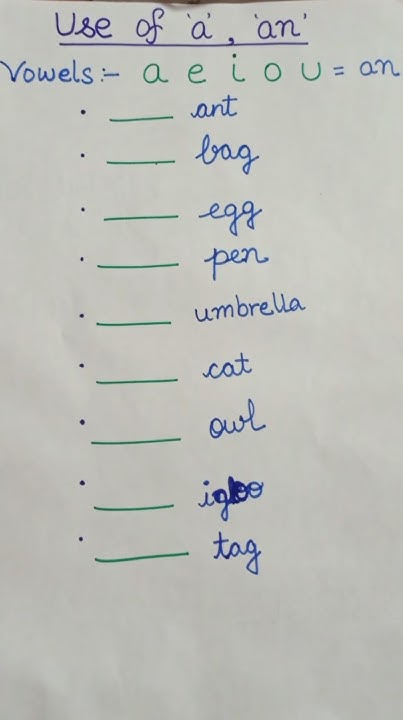 Use of 'a', 'an'
Vowels:- a e i o u = an
• ____ ant
• ____ bag
• ____ egg
• ____ pen
• ____ umbrella
• ____ cat
• ____ owl
• ____ igloo
• ____ tag